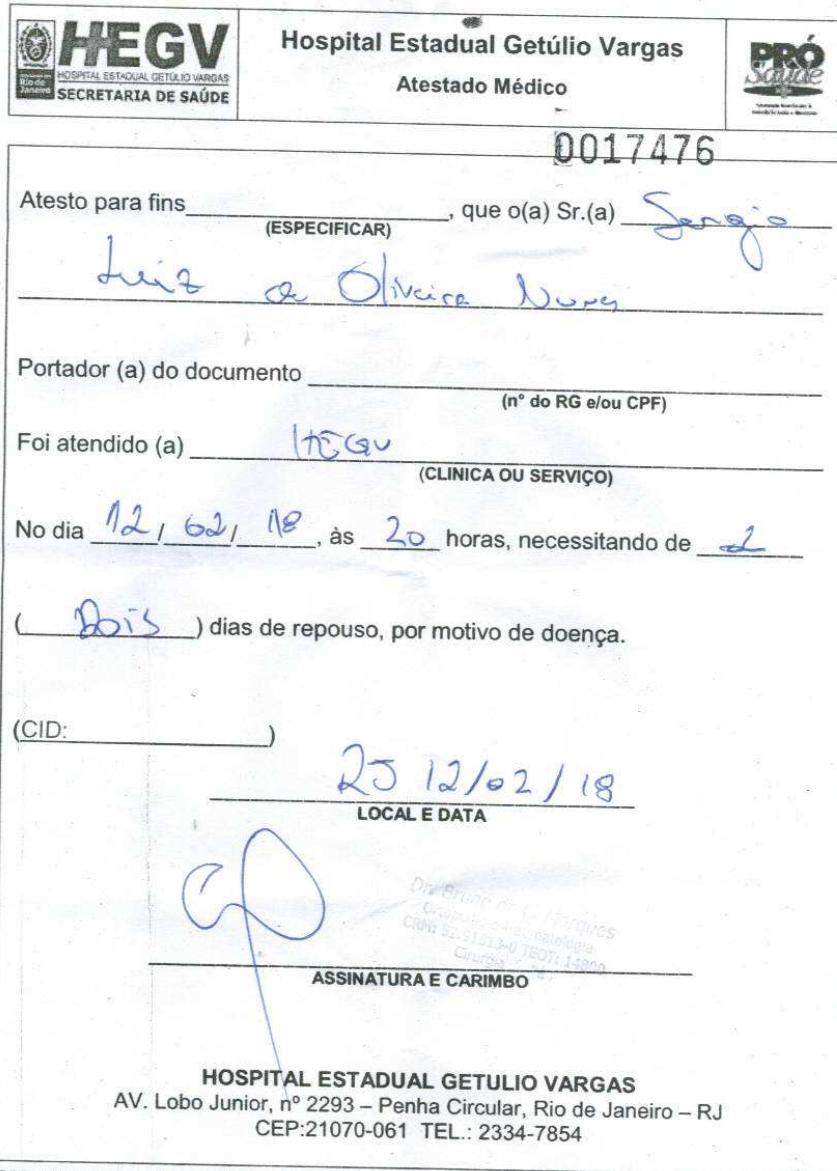 HEGV
HOSPITAL ESTADUAL GETÚLIO VARGAS
SECRETARIA DE SAÚDE
Hospital Estadual Getúlio Vargas
Atestado Médico
PRÓ
Saúde
0017476
Atesto para fins , que o(a) Sr.(a) Sergio
(ESPECIFICAR)
Luiz de Oliveira Nunes
Portador (a) do documento
(n° do RG e/ou CPF)
Foi atendido (a) HEGV
(CLINICA OU SERVIÇO)
No dia 12/02/18, às 20 horas, necessitando de 2
(Dois) dias de repouso, por motivo de doença.
(CID: )
RJ 12/02/18
LOCAL E DATA
Dr. Bruno de C. Marques
Ortopedia
TEOT: 14800
ASSINATURA E CARIMBO
HOSPITAL ESTADUAL GETULIO VARGAS
AV. Lobo Junior, nº 2293 – Penha Circular, Rio de Janeiro – RJ
CEP:21070-061 TEL.: 2334-7854